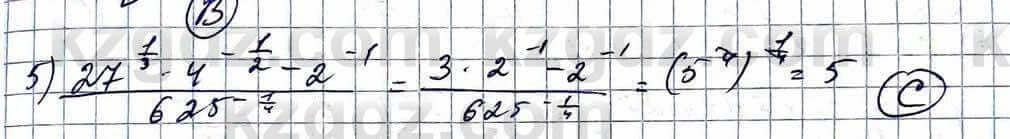 B
5) \frac{27^{\frac{1}{3}} \cdot 4^{-\frac{1}{2}} - 2^{-1}}{625^{-\frac{1}{4}}} = \frac{3 \cdot 2^{-1} - 2^{-1}}{625^{-\frac{1}{4}}} = (5^{4})^{\frac{1}{4}} = 5 C